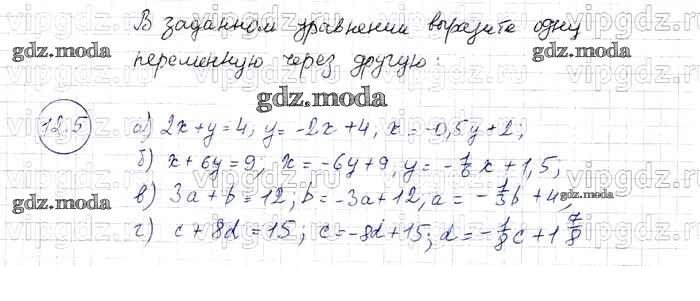 В заданном уравнении выразите одну
переменную через другую:
gdz.moda
12.5
а) 2x+y=4, y=-2x+4, x=-0,5y+2;
б) x+6y=9; x=-6y+9, y=-1/6x+1,5;
в) 3a+b=12; b=-3a+12, a=-1/3b+4,
г) c+8d=15; c=-8d+15; d=-1/8c+1 7/8
gdz.moda
gdz.moda
gdz.moda
gdz.moda
vipgdz.ru